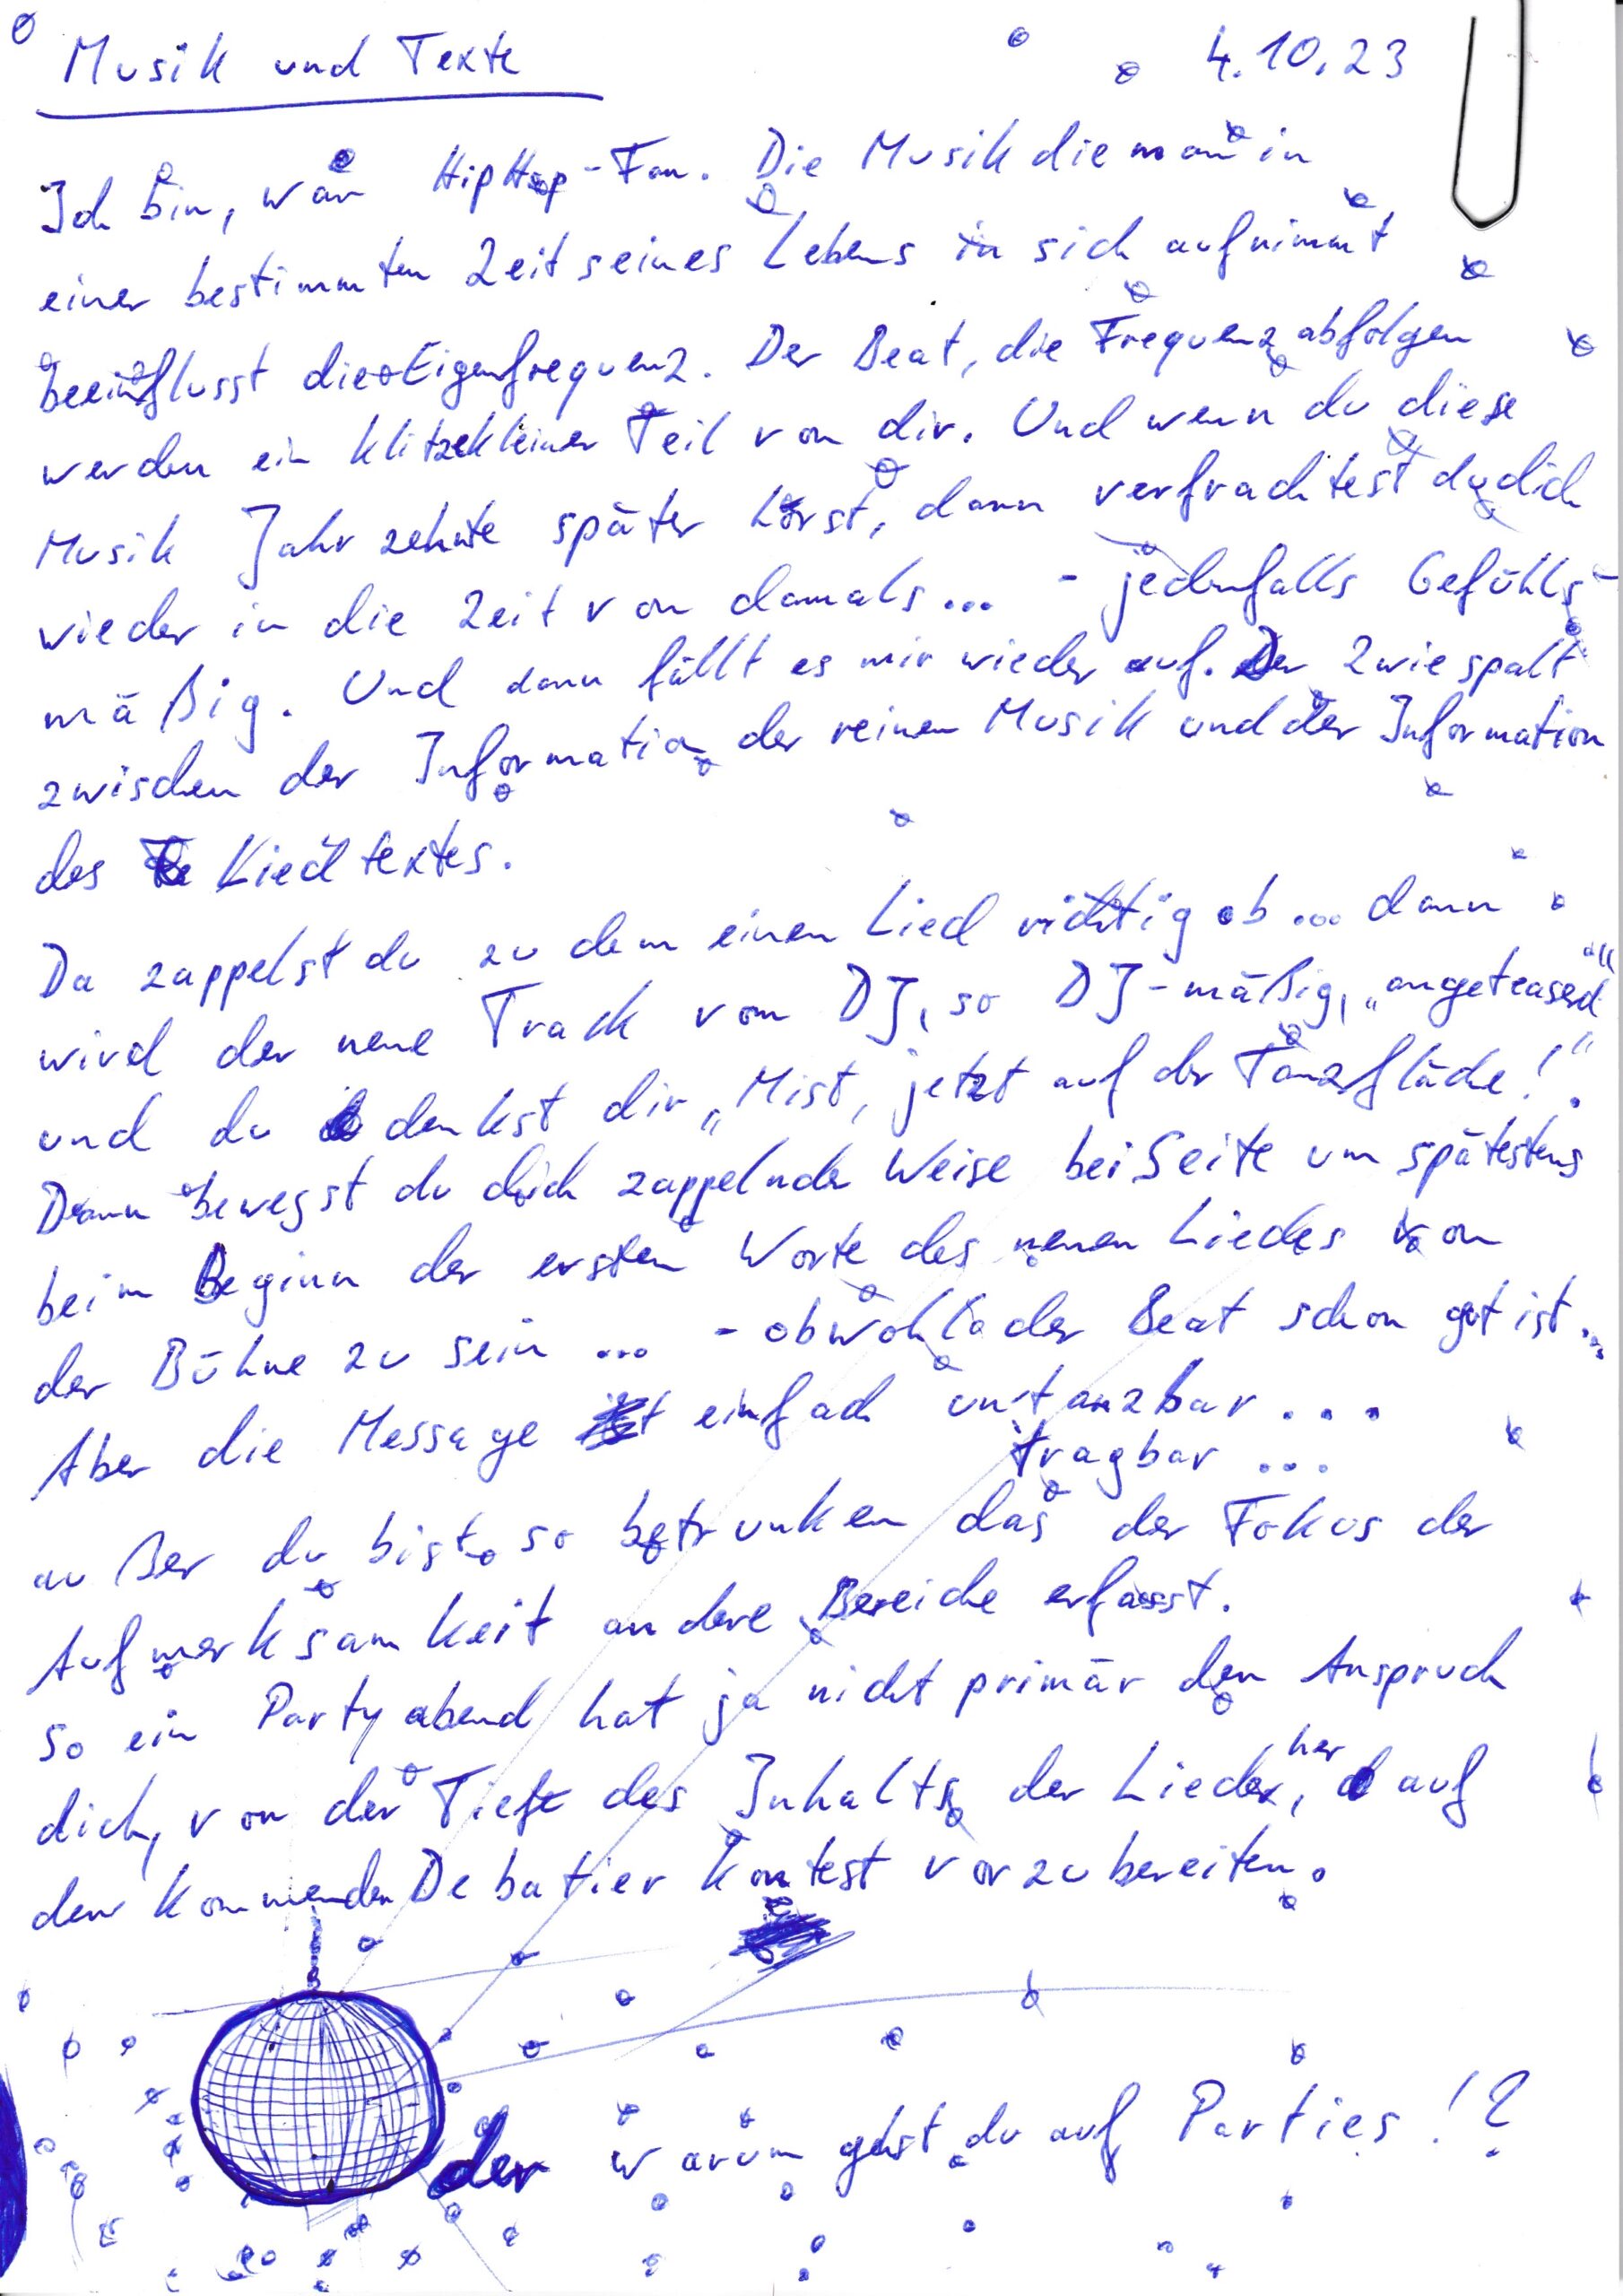 Musik und Texte 4.10.23
Ich bin, war HipHop-Fan. Die Musik die man in
einer bestimmten Zeit seines Lebens in sich aufnimmt
beeinflusst die Eigenfrequenz. Der Beat, die Frequenzabfolgen
werden ein klitzekleiner Teil von dir. Und wenn du diese
Musik Jahrzehnte später hörst, dann verfrachtest du dich
wieder in die Zeit von damals... - jedenfalls Gefühls-
mäßig. Und dann fällt es mir wieder auf. Der Zwiespalt
zwischen der Information der reinen Musik und der Information
des Liedtextes.
Da zappelst du zu dem einen Lied richtig ab... dann
wird der neue Track vom DJ, so DJ-mäßig, „angeteased“
und du denkst dir „Mist, jetzt auf der Tanzfläche!“.
Dann bewegst du dich zappelnder Weise bei Seite um spätestens
beim Beginn der ersten Worte des neuen Liedes von
der Bühne zu sein ... - obwohl der Beat schon gut ist...
Aber die Message ist einfach untanzbar ...
tragbar ...
außer du bist so betrunken das der Fokus der
Aufmerksamkeit andere Bereiche erfasst.
So ein Partyabend hat ja nicht primär den Anspruch
dich, von der Tiefe des Inhalts der Lieder her, auf
den kommenden Debatier Kontest vorzubereiten.
Oder warum gehst du auf Parties!?